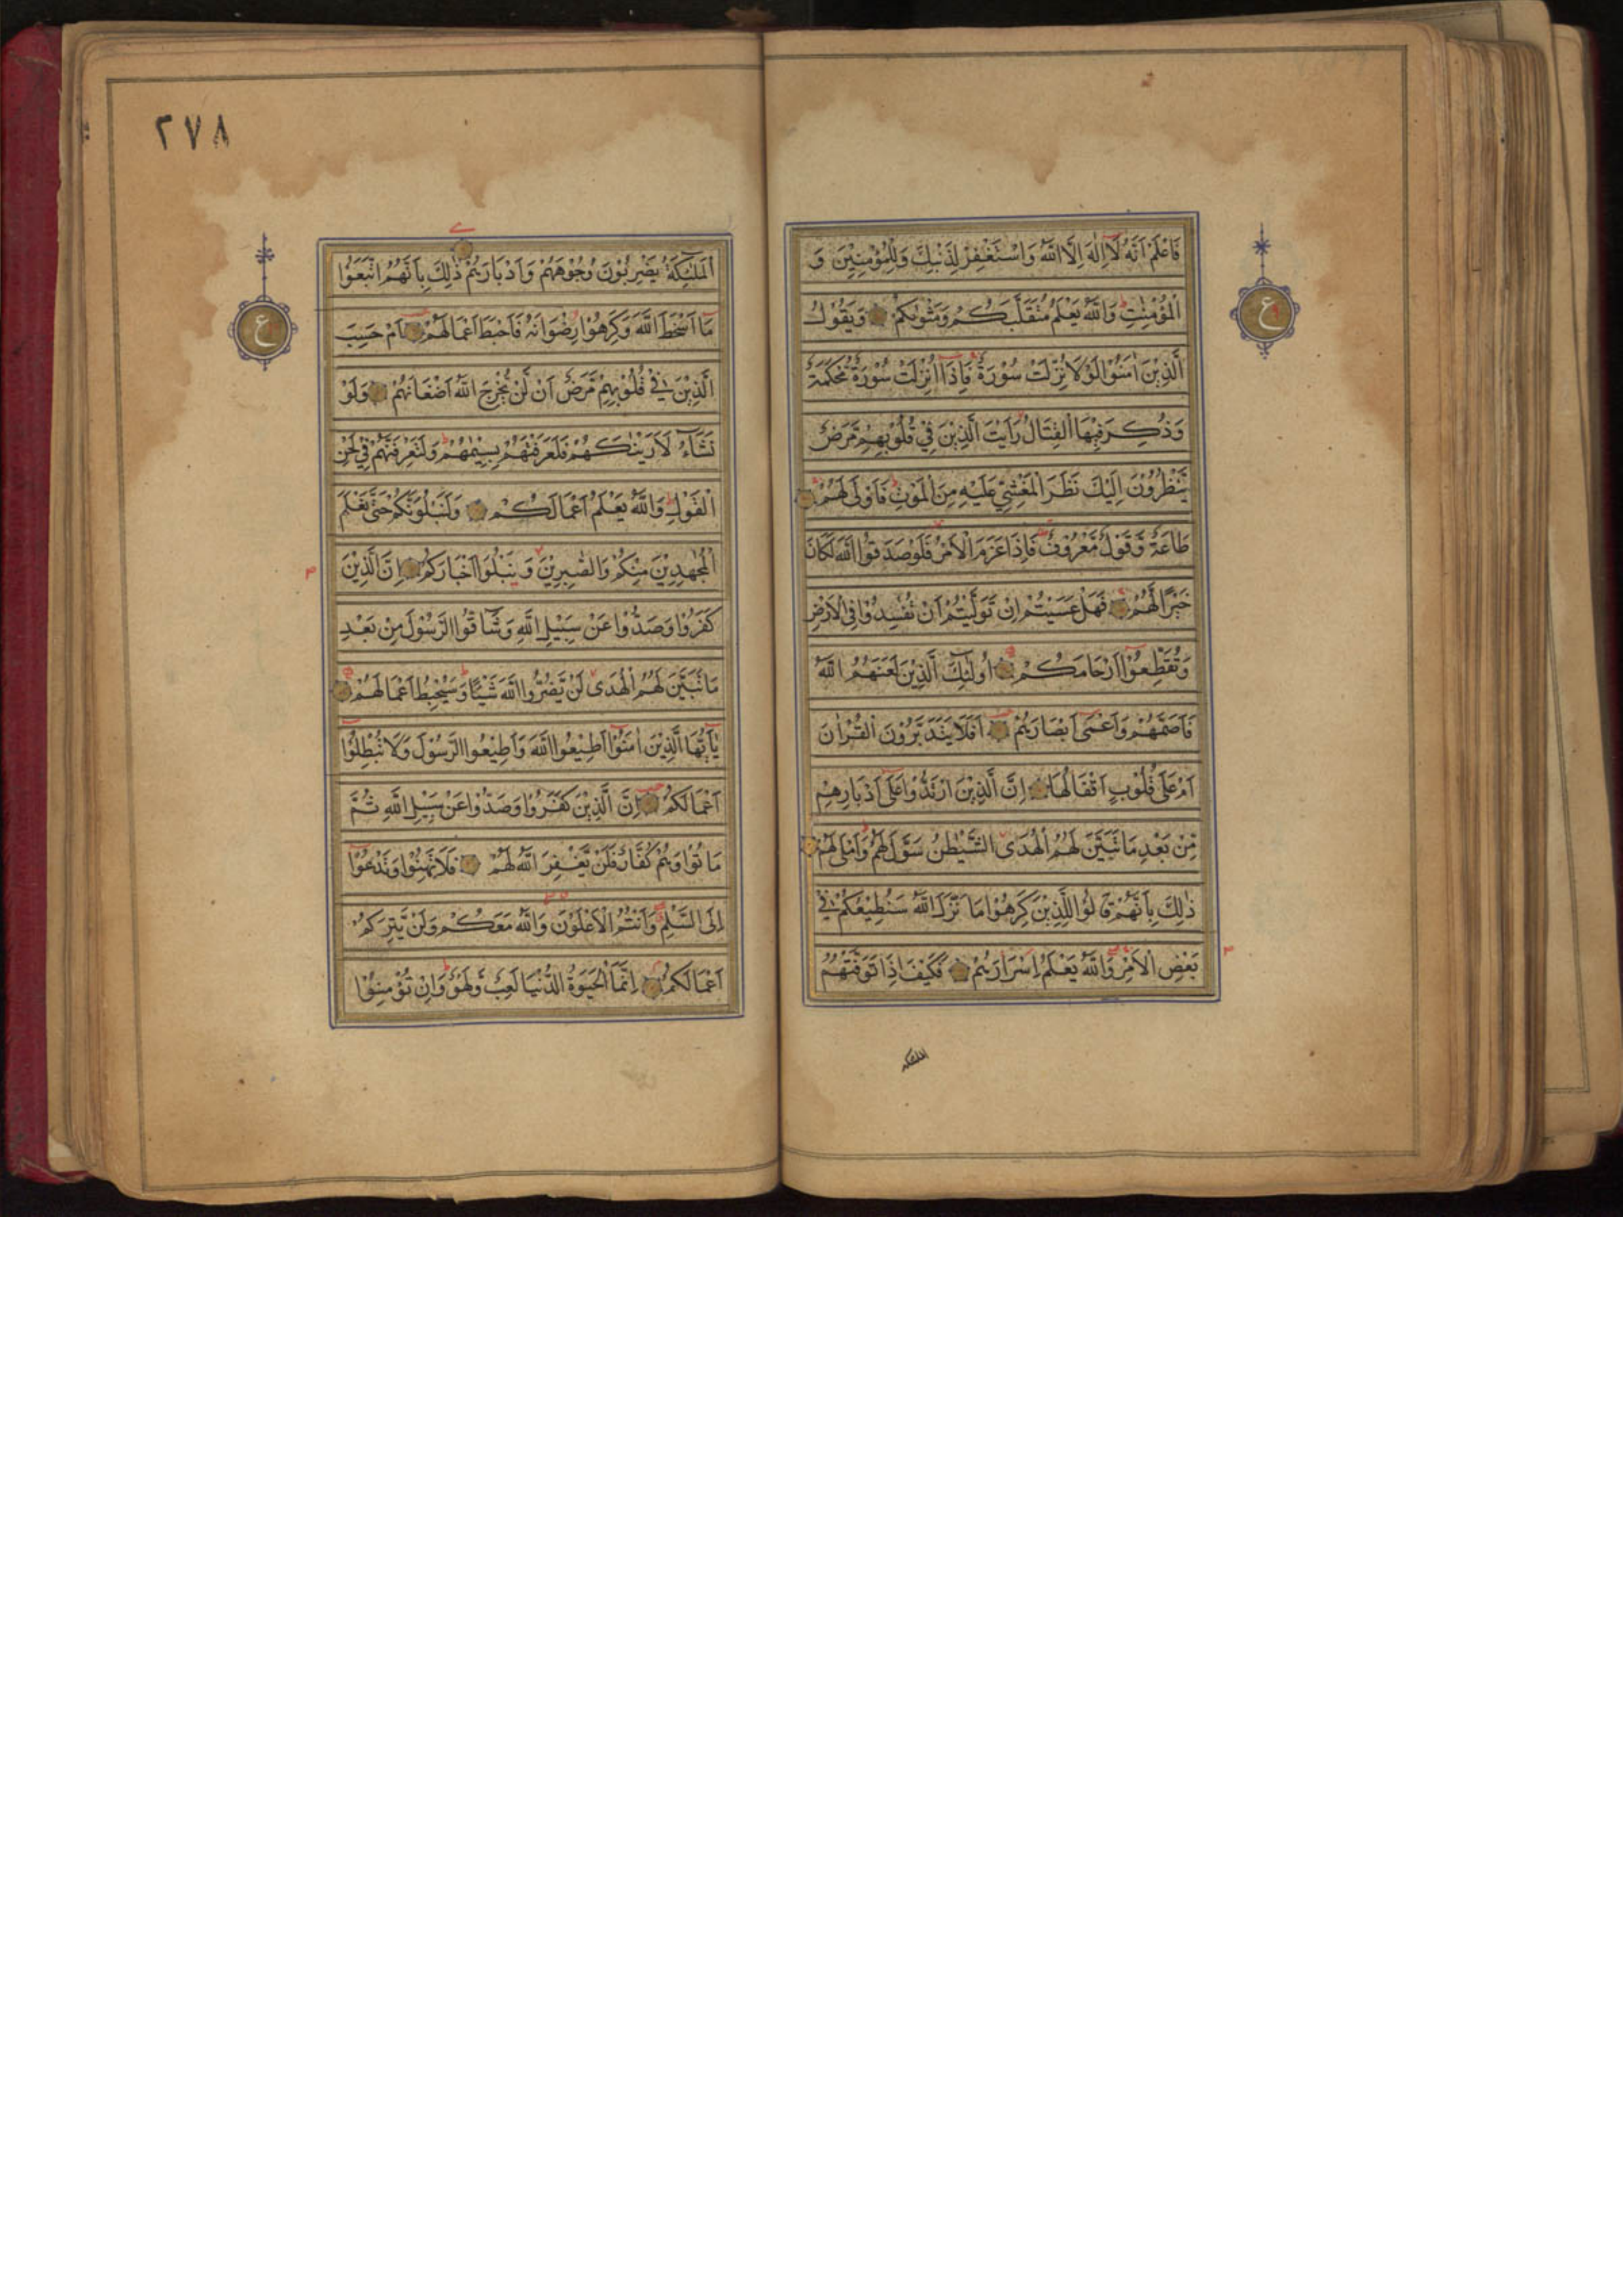 فَاعْلَمْ اَنَّهُ لَآ اِلٰهَ اِلَّا اللّٰهُ وَاسْتَغْفِرْ لِذَنْبِكَ وَلِلْمُؤْمِنِيْنَ وَ
الْمُؤْمِنٰتِ ط وَاللّٰهُ يَعْلَمُ مُتَقَلَّبَكُمْ وَمَثْوٰىكُمْ وَيَقُوْلُ
الَّذِيْنَ اٰمَنُوْا لَوْلَا نُزِّلَتْ سُوْرَةٌ فَاِذَآ اُنْزِلَتْ سُوْرَةٌ مُّحْكَمَةٌ
وَذُكِرَ فِيْهَا الْقِتَالُ رَاَيْتَ الَّذِيْنَ فِيْ قُلُوْبِهِمْ مَّرَضٌ
يَّنْظُرُوْنَ اِلَيْكَ نَظَرَ الْمَغْشِيِّ عَلَيْهِ مِنَ الْمَوْتِ ط فَاَوْلٰى لَهُمْ
طَاعَةٌ وَّقَوْلٌ مَّعْرُوْفٌ فَاِذَا عَزَمَ الْاَمْرُ فَلَوْ صَدَقُوا اللّٰهَ لَكَانَ
خَيْرًا لَّهُمْ فَهَلْ عَسَيْتُمْ اِنْ تَوَلَّيْتُمْ اَنْ تُفْسِدُوْا فِي الْاَرْضِ
وَتُقَطِّعُوْٓا اَرْحَامَكُمْ اُولٰٓئِكَ الَّذِيْنَ لَعَنَهُمُ اللّٰهُ
فَاَصَمَّهُمْ وَاَعْمٰٓى اَبْصَارَهُمْ اَفَلَا يَتَدَبَّرُوْنَ الْقُرْاٰنَ
اَمْ عَلٰى قُلُوْبٍ اَقْفَالُهَا اِنَّ الَّذِيْنَ ارْتَدُّوْا عَلٰٓى اَدْبَارِهِمْ
مِّنْ بَعْدِ مَا تَبَيَّنَ لَهُمُ الْهُدَى الشَّيْطٰنُ سَوَّلَ لَهُمْ وَاَمْلٰى لَهُمْ
ذٰلِكَ بِاَنَّهُمْ قَالُوْا لِلَّذِيْنَ كَرِهُوْا مَا نَزَّلَ اللّٰهُ سَنُطِيْعُكُمْ فِيْ
بَعْضِ الْاَمْرِ وَاللّٰهُ يَعْلَمُ اِسْرَارَهُمْ فَكَيْفَ اِذَا تَوَفَّتْهُمُ
الملٰئكة
٢٧٨
الْمَلٰٓئِكَةُ يَضْرِبُوْنَ وُجُوْهَهُمْ وَاَدْبَارَهُمْ ذٰلِكَ بِاَنَّهُمُ اتَّبَعُوْا
مَآ اَسْخَطَ اللّٰهَ وَكَرِهُوْا رِضْوَانَهُ فَاَحْبَطَ اَعْمَالَهُمْ اَمْ حَسِبَ
الَّذِيْنَ فِيْ قُلُوْبِهِمْ مَّرَضٌ اَنْ لَّنْ يُّخْرِجَ اللّٰهُ اَضْغَانَهُمْ وَلَوْ
نَشَآءُ لَاَرَيْنٰكَهُمْ فَلَعَرَفْتَهُمْ بِسِيْمٰهُمْ ط وَلَتَعْرِفَنَّهُمْ فِيْ لَحْنِ
الْقَوْلِ ط وَاللّٰهُ يَعْلَمُ اَعْمَالَكُمْ وَلَنَبْلُوَنَّكُمْ حَتّٰى نَعْلَمَ
الْمُجٰهِدِيْنَ مِنْكُمْ وَالصّٰبِرِيْنَ وَنَبْلُوَا۟ اَخْبَارَكُمْ اِنَّ الَّذِيْنَ
كَفَرُوْا وَصَدُّوْا عَنْ سَبِيْلِ اللّٰهِ وَشَآقُّوا الرَّسُوْلَ مِنْ بَعْدِ
مَا تَبَيَّنَ لَهُمُ الْهُدٰى لَنْ يَّضُرُّوا اللّٰهَ شَيْئًا ط وَسَيُحْبِطُ اَعْمَالَهُمْ
يٰٓاَيُّهَا الَّذِيْنَ اٰمَنُوْٓا اَطِيْعُوا اللّٰهَ وَاَطِيْعُوا الرَّسُوْلَ وَلَا تُبْطِلُوْٓا
اَعْمَالَكُمْ اِنَّ الَّذِيْنَ كَفَرُوْا وَصَدُّوْا عَنْ سَبِيْلِ اللّٰهِ ثُمَّ
مَاتُوْا وَهُمْ كُفَّارٌ فَلَنْ يَّغْفِرَ اللّٰهُ لَهُمْ فَلَا تَهِنُوْا وَتَدْعُوْٓا
اِلَى السَّلْمِ وَاَنْتُمُ الْاَعْلَوْنَ وَاللّٰهُ مَعَكُمْ وَلَنْ يَّتِرَكُمْ
اَعْمَالَكُمْ اِنَّمَا الْحَيٰوةُ الدُّنْيَا لَعِبٌ وَّلَهْوٌ ط وَاِنْ تُؤْمِنُوْا
ع
ع